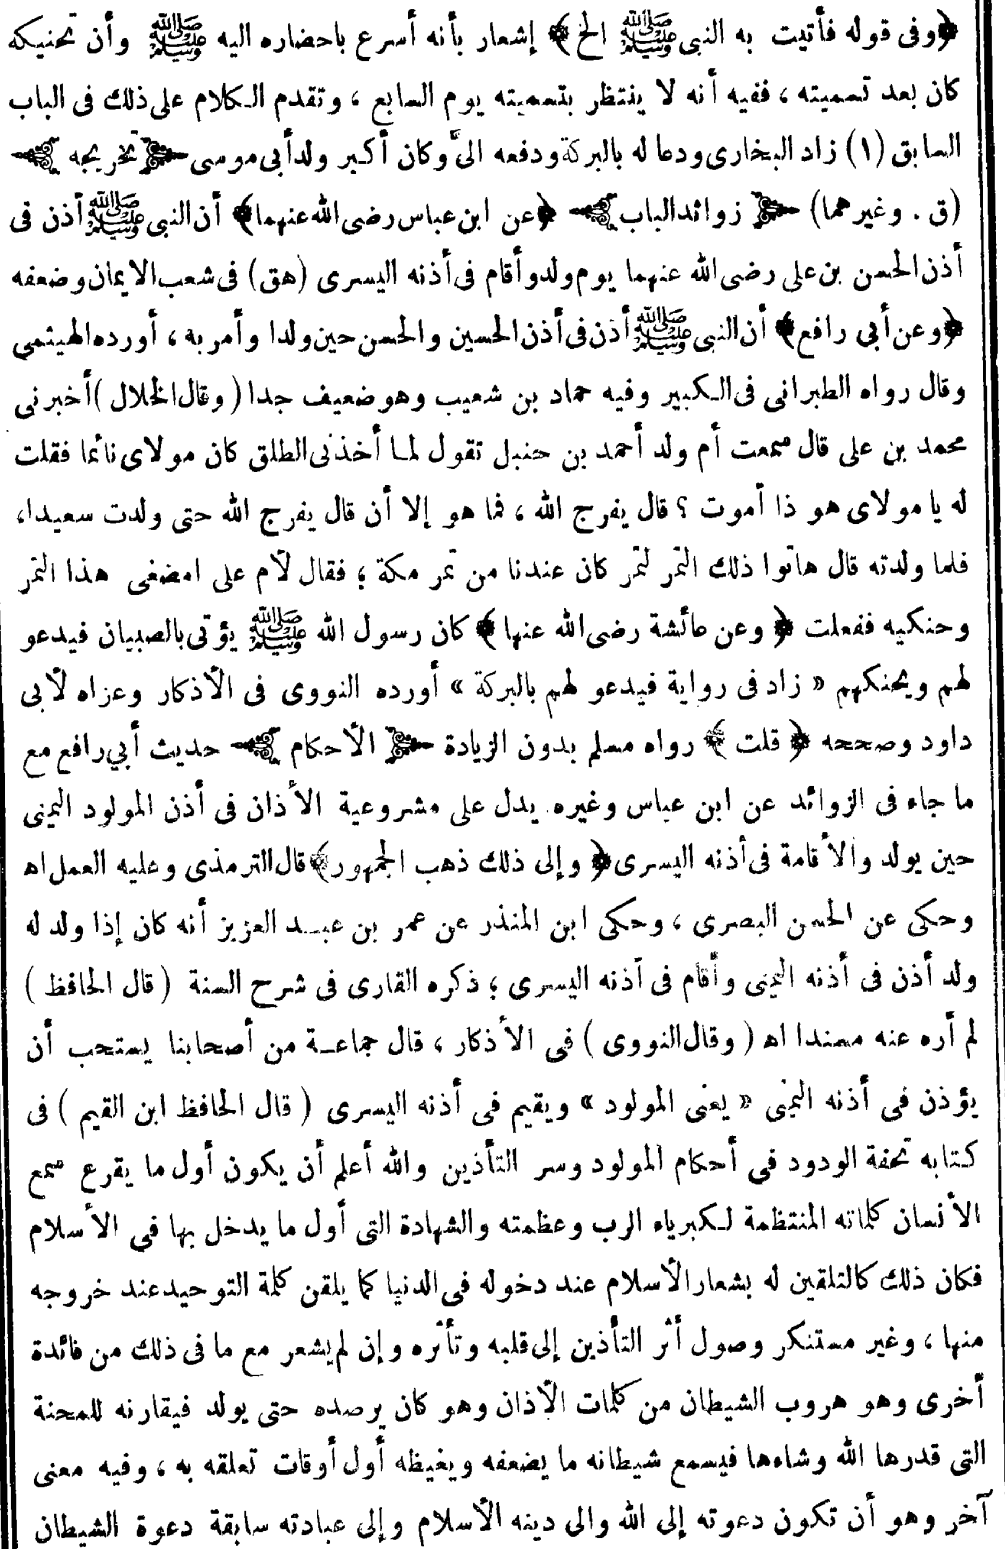 ﴿وفى قوله فأتيت به النبى ﷺ الخ﴾ إشعار بأنه أسرع باحضاره اليه ﷺ وأن تحنيكه
كان بعد تسميته ، ففيه أنه لا ينتظر بتسميته يوم السابع ، وتقدم الكلام على ذلك فى الباب
السابق (١) زاد البخارى ودعا له بالبركة ودفعه الىَّ وكان أكبر ولد أبى موسى ﴿ تخريجه ﴾
(ق . وغيرهما) ﴿ زوائد الباب ﴾ ﴿عن ابن عباس رضى الله عنهما﴾ أن النبى ﷺ أذن فى
أذن الحسن بن على رضى الله عنهما يوم ولد وأقام فى أذنه اليسرى (هق) فى شعب الايمان وضعفه
﴿وعن أبى رافع﴾ أن النبى ﷺ أذن فى أذن الحسين والحسن حين ولدا وأمر به ، أورده الهيثمى
وقال رواه الطبرانى فى الكبير وفيه حماد بن شعيب وهو ضعيف جدا ( وقال الخلال ) أخبرنى
محمد بن على قال سمعت أم ولد أحمد بن حنبل تقول لما أخذنى الطلق كان مولاى نائما فقلت
له يا مولاى هو ذا أموت ؟ قال يفرج الله ، فما هو إلا أن قال يفرج الله حتى ولدت سعيدا،
فلما ولدته قال هاتوا ذلك التمر لتمر كان عندنا من تمر مكة ؛ فقال لأم على امضغى هذا التمر
وحنكيه ففعلت ﴿ وعن عائشة رضى الله عنها ﴾ كان رسول الله ﷺ يؤتى بالصبيان فيدعو
لهم ويحنكهم « زاد فى رواية فيدعو لهم بالبركة » أورده النووى فى الأذكار وعزاه لأبى
داود وصححه ﴿ قلت ﴾ رواه مسلم بدون الزيادة ﴿ الأحكام ﴾ حديث أبي رافع مع
ما جاء فى الزوائد عن ابن عباس وغيره يدل على مشروعية الأذان فى أذن المولود اليمنى
حين يولد والأقامة فى أذنه اليسرى ﴿ وإلى ذلك ذهب الجمهور ﴾ قال الترمذى وعليه العمل اه
وحكى عن الحسن البصرى ، وحكى ابن المنذر عن عمر بن عبد العزيز أنه كان إذا ولد له
ولد أذن فى أذنه اليمنى وأقام فى أذنه اليسرى ؛ ذكره القارى فى شرح السنة ( قال الحافظ )
لم أره عنه مسندا اه ( وقال النووى ) فى الأذكار ، قال جماعة من أصحابنا يستحب أن
يؤذن فى أذنه اليمنى « يعنى المولود » ويقيم فى أذنه اليسرى ( قال الحافظ ابن القيم ) فى
كتابه تحفة الودود فى أحكام المولود وسر التأذين والله أعلم أن يكون أول ما يقرع سمع
الأنسان كلماته المنتظمة لكبرياء الرب وعظمته والشهادة التى أول ما يدخل بها فى الأسلام
فكان ذلك كالتلقين له بشعار الأسلام عند دخوله فى الدنيا كما يلقن كلمة التوحيد عند خروجه
منها ، وغير مستنكر وصول أثر التأذين إلى قلبه وتأثره وإن لم يشعر مع ما فى ذلك من فائدة
أخرى وهو هروب الشيطان من كلمات الأذان وهو كان يرصده حتى يولد فيقارنه للمحنة
التى قدرها الله وشاءها فيسمع شيطانه ما يضعفه ويغيظه أول أوقات تعلقه به ، وفيه معنى
آخر وهو أن تكون دعوته إلى الله والى دينه الأسلام وإلى عبادته سابقة دعوة الشيطان